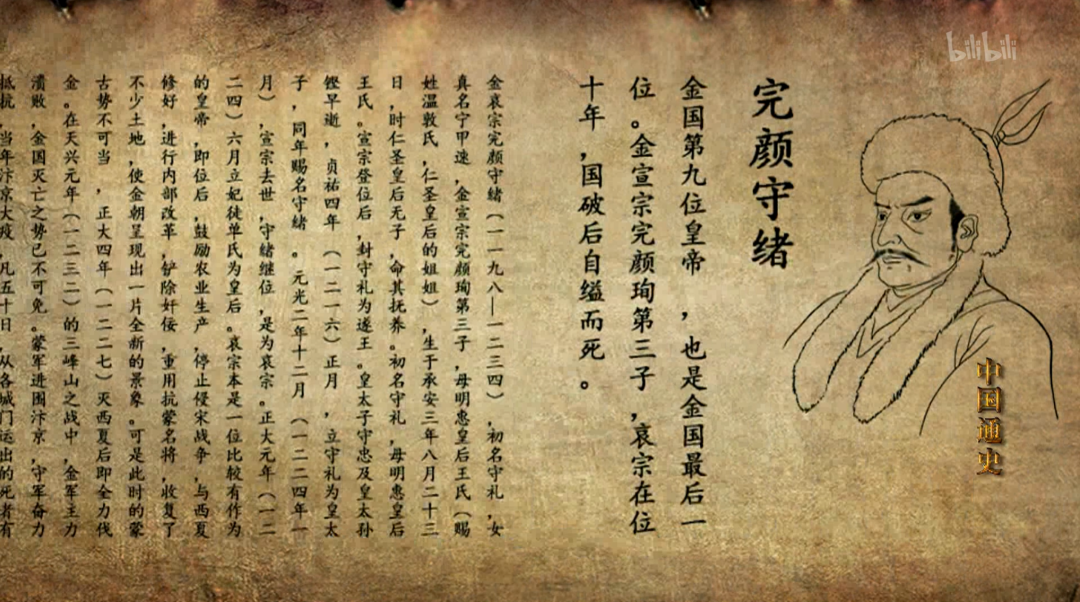 bilibili
完颜守绪
金国第九位皇帝，也是金国最后一
位。金宣宗完颜珣第三子，哀宗在位
十年，国破后自缢而死。
金哀宗完颜守绪（一一九八—一二三四），初名守礼，女
真名宁甲速，金宣宗完颜珣第三子，母明惠皇后王氏（赐
姓温敦氏，仁圣皇后的姐姐），生于承安三年八月二十三
日，时仁圣皇后无子，命其抚养。初名守礼，母明惠皇后
王氏。宣宗登位后，封守礼为遂王。皇太子守忠及皇太孙
铿早逝，贞祐四年（一二一六）正月，立守礼为皇太
子，同年赐名守绪。元光二年十二月（一二二四年一
月），宣宗去世，守绪继位，是为哀宗。正大元年（一二
二四）六月立妃徒单氏为皇后。哀宗本是一位比较有作为
的皇帝，即位后，鼓励农业生产，停止侵宋战争，与西夏
修好，进行内部改革，铲除奸佞，重用抗蒙名将，收复了
不少土地，使金朝呈现出一片全新的景象。可是此时的蒙
古势不可当，正大四年（一二二七）灭西夏后即全力伐
金。在天兴元年（一二三二）的三峰山之战中，金军主力
溃败，金国灭亡之势已不可免。蒙军进围汴京，守军奋力
抵抗，当年汴京大疫，凡五十日，从各城门运出的死者有
中国通史